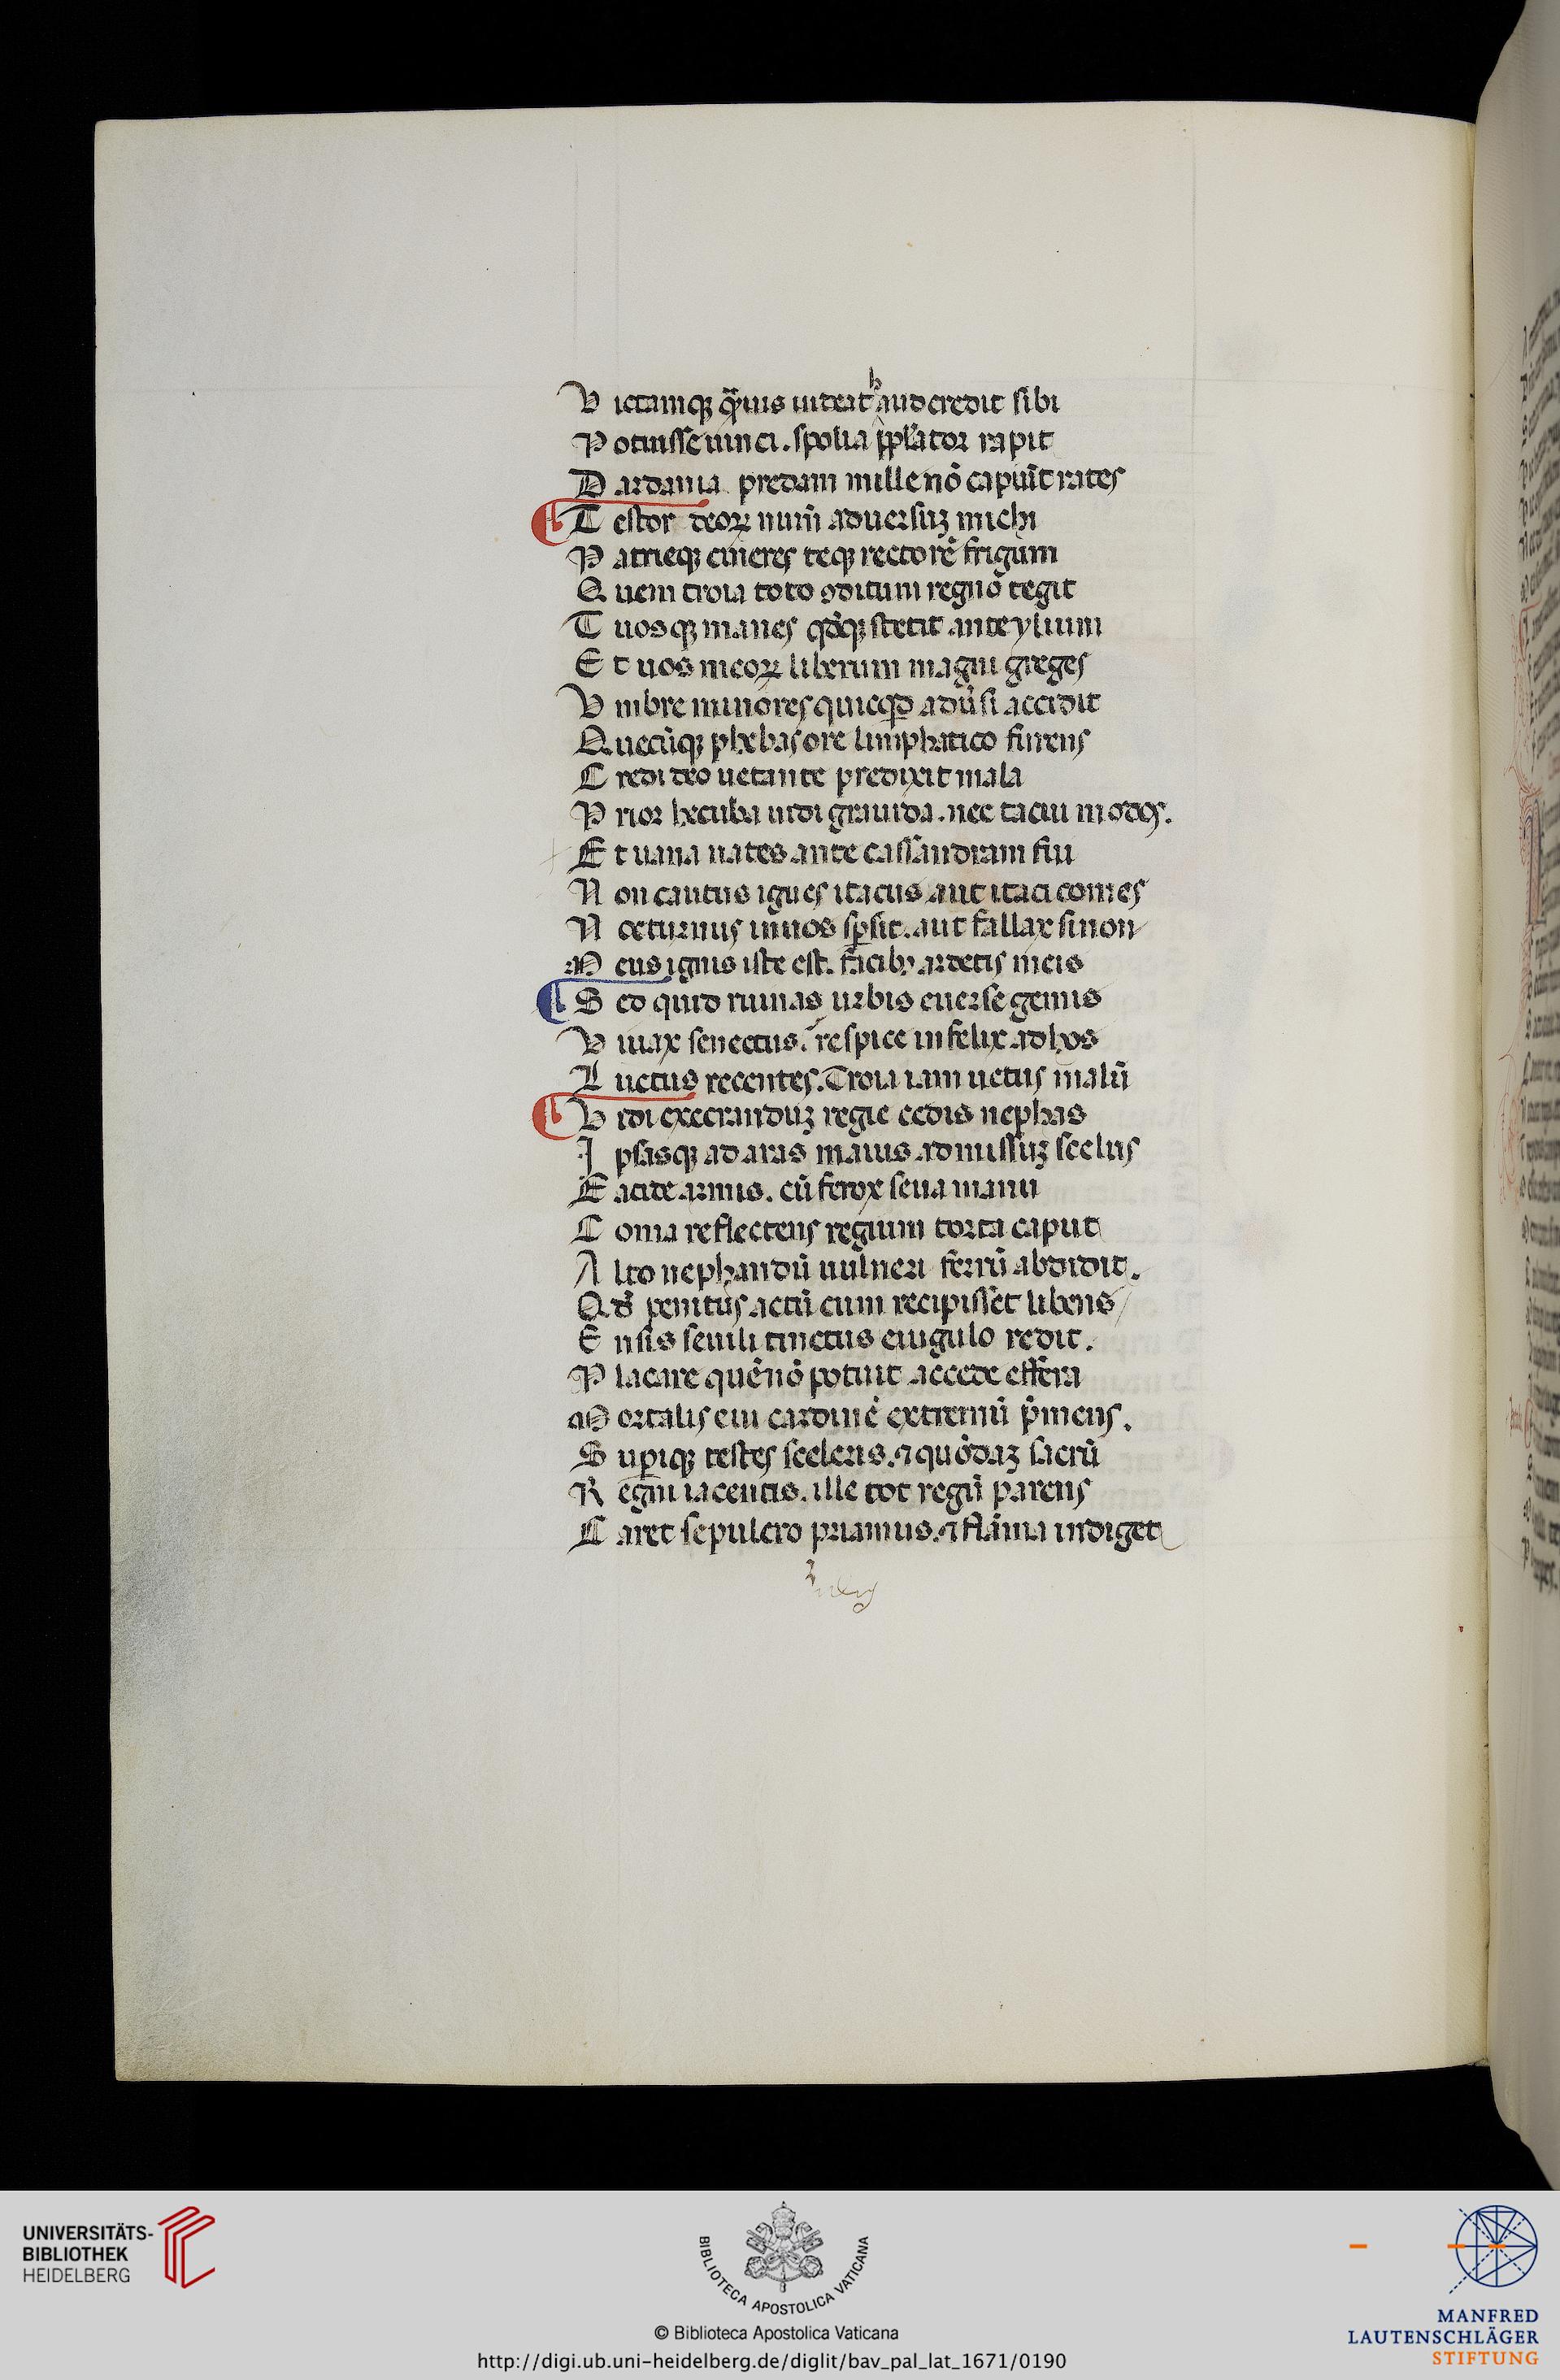 Victamqꝫ qͣuis uideat haud credit sibi
Potuisse uinci. spolia ꝓplator rapit
Dardania predam mille nō capiūt rates
Testor deoꝝ numū aduersuꝫ michi
Patrieqꝫ cineres teqꝫ rectorē frigum
Quem troia toto ꝯditum regno tegit
Tuosqꝫ manes qͦqꝫ stetit ante ylium
Et uos meoꝝ liberum magni greges
Vmbre minores quicqͥd adūsi accidit
Quecūqꝫ phebas ore limphatico furens
Credi deo uetante predixit mala
Prior hecuba uidi grauida. nec tacui modos.
Et uana uates ante cassandram fui
Non cautus ignes itacus aut itaci comes
Nocturnus in uos sꝑsit. aut fallax sinon
Meus ignis iste est. facibꝫ ardetis meis
Sed quid ruinas urbis euerse gemis
Viuax senectus. respice infelix ad hos
Luctus recentes. Troia iam uetus malū
Vidi execranduꝫ regie cedis nephas
Ipsasqꝫ ad aras maius admissuꝫ scelus
Eacide armis. cū ferox seua manu
Coma reflectens regium torta caput
Alto nephandū uulneri ferrū abdidit.
Qd̓ penitus actū cum recipisset libens
Ensis senili tinctus eiugulo redit.
Placare quē nō potuit accede effera
Mortalis eui cardinē extremū p̄mens.
Suꝑiqꝫ testes sceleris. ⁊ quōdaꝫ sacrū
Regni iacentis. ille tot regū parens
Caret sepulcro priamus. ⁊ flāma indiget
UNIVERSITÄTS-
BIBLIOTHEK
HEIDELBERG
BIBLIOTECA APOSTOLICA VATICANA
© Biblioteca Apostolica Vaticana
http://digi.ub.uni-heidelberg.de/diglit/bav_pal_lat_1671/0190
MANFRED
LAUTENSCHLÄGER
STIFTUNG